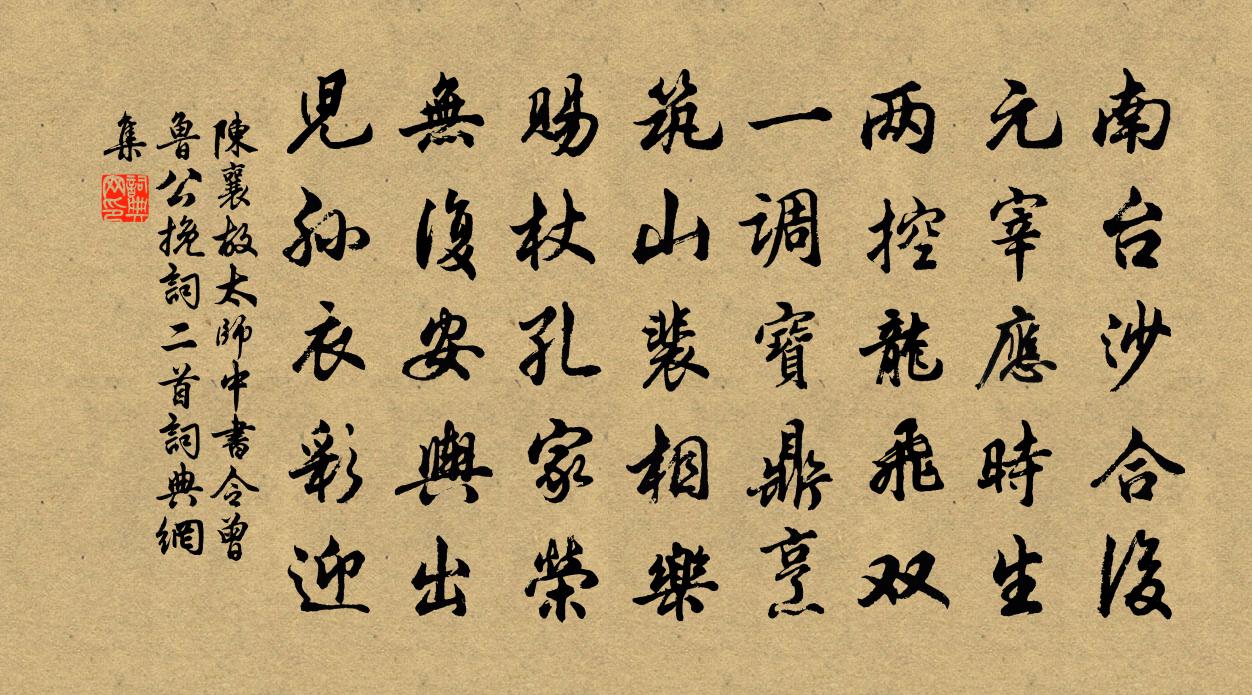 南台沙合後
元宰應時生
两控龍飛双
一調寶鼎亨
筑山裴相樂
賜杖孔家榮
無復安輿出
児孫衣彩迎
陳襄故太師中書令曾
魯公挽詞二首詞典網
集
詞典网印